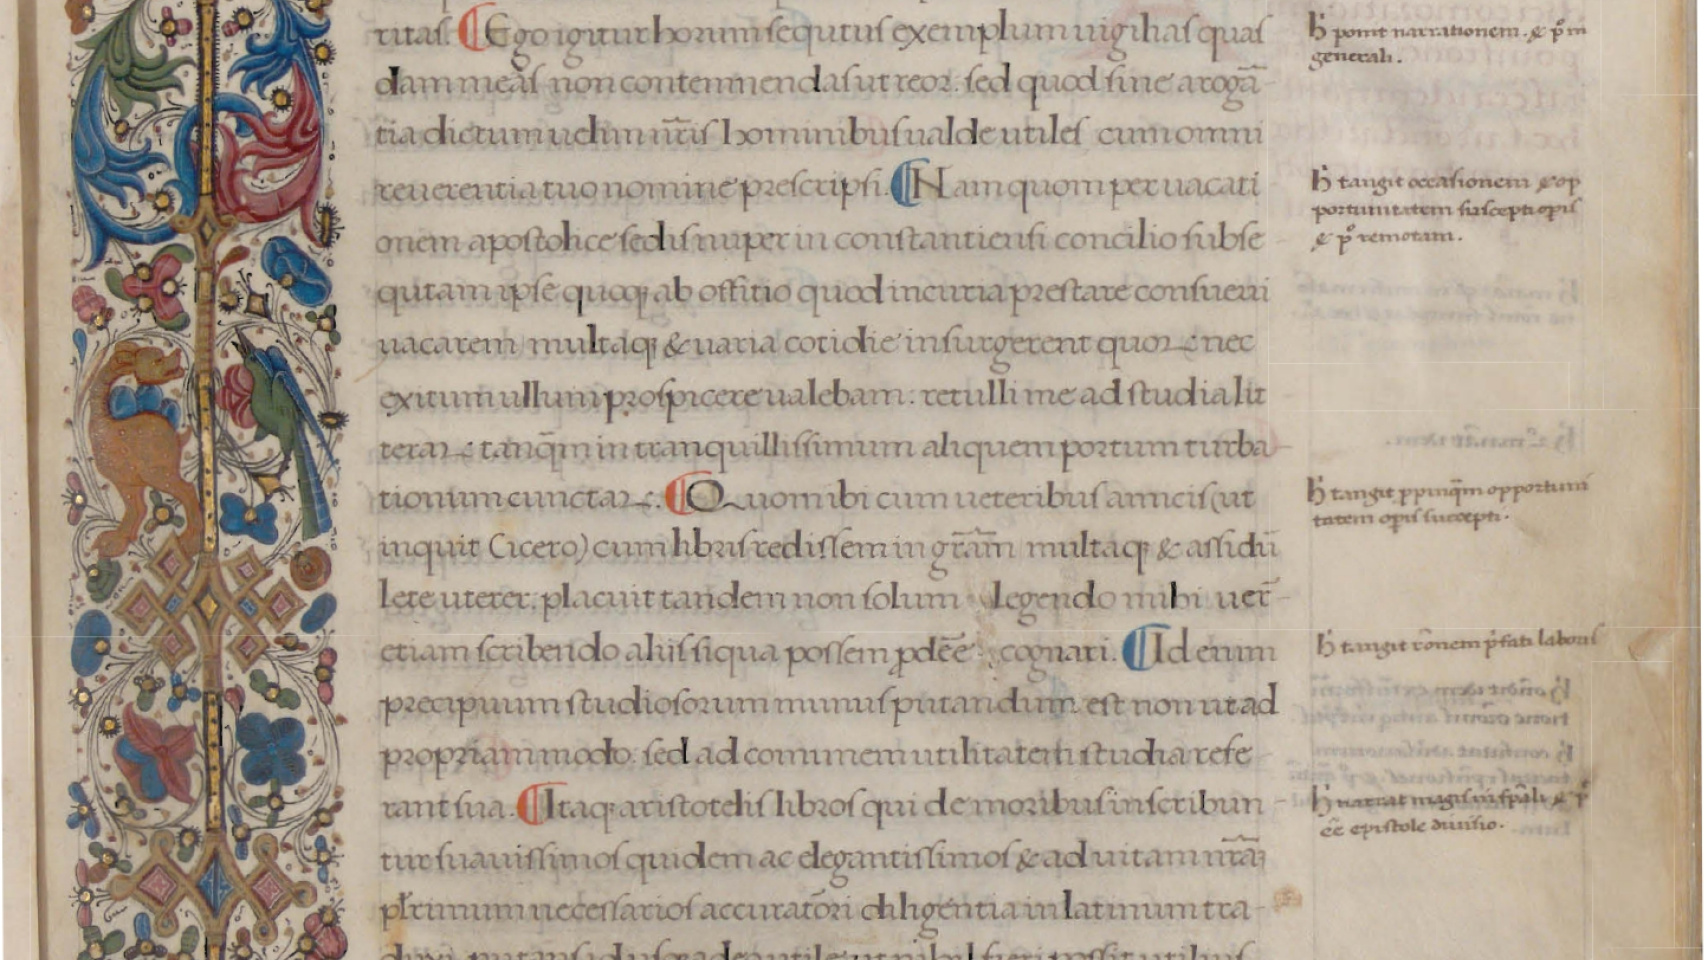 titas. Ego igitur horum sequtus exemplum uigilias quas
dam meas non contemnendas ut reor. sed quod sine arogā
tia dictum uelim nr̄is hominibus ualde utiles cum omni
reuerentia tuo nomine prescripsi. Nam quom per uacati
onem apostolice sedis nuper in constantiensi concilio subse
qutam ipse quoqꝫ ab offitio quod in curia prestare consueui
uacarem multaqꝫ & uaria cotidie insurgerent quoꝝ nec
exitum ullum prospicere ualebam: retulli me ad studia lit
teraꝝ tanq̄m in tranquillissimum aliquem portum turba
tionum cunctaꝝ. Quom ibi cum ueteribus amicis (ut
inquit Cicero) cum libris redissem in gr̄am multaqꝫ & assidū
lete uterer; placuit tandem non solum legendo mihi uer̄
etiam scribendo aliis siqua possem ꝓdēē cognari. Id enim
precipuum studiosorum munus putandum est non ut ad
propriam modo: sed ad comunem utilitatem studia refe
rant sua. Itaqꝫ aristotelis libros qui de moribus inscribun
tur suauissimos quidem ac elegantissimos & ad uitam nr̄aꝫ
pl̄rimum necessarios accurator̄i diligentia in latinum tra
duxi
ħ ponit narrationem. & pͦ in
generali.
ħ tangit occasionem & op
portunitatem suscepti opis
& pͦ remotam.
ħ tangit ꝓpinq̄m opportuni
tatem opis suscepti.
ħ tangit rōnem p̄fati laboris
ħ narrat magis in sp̄ali &
eē epistole diuisio.